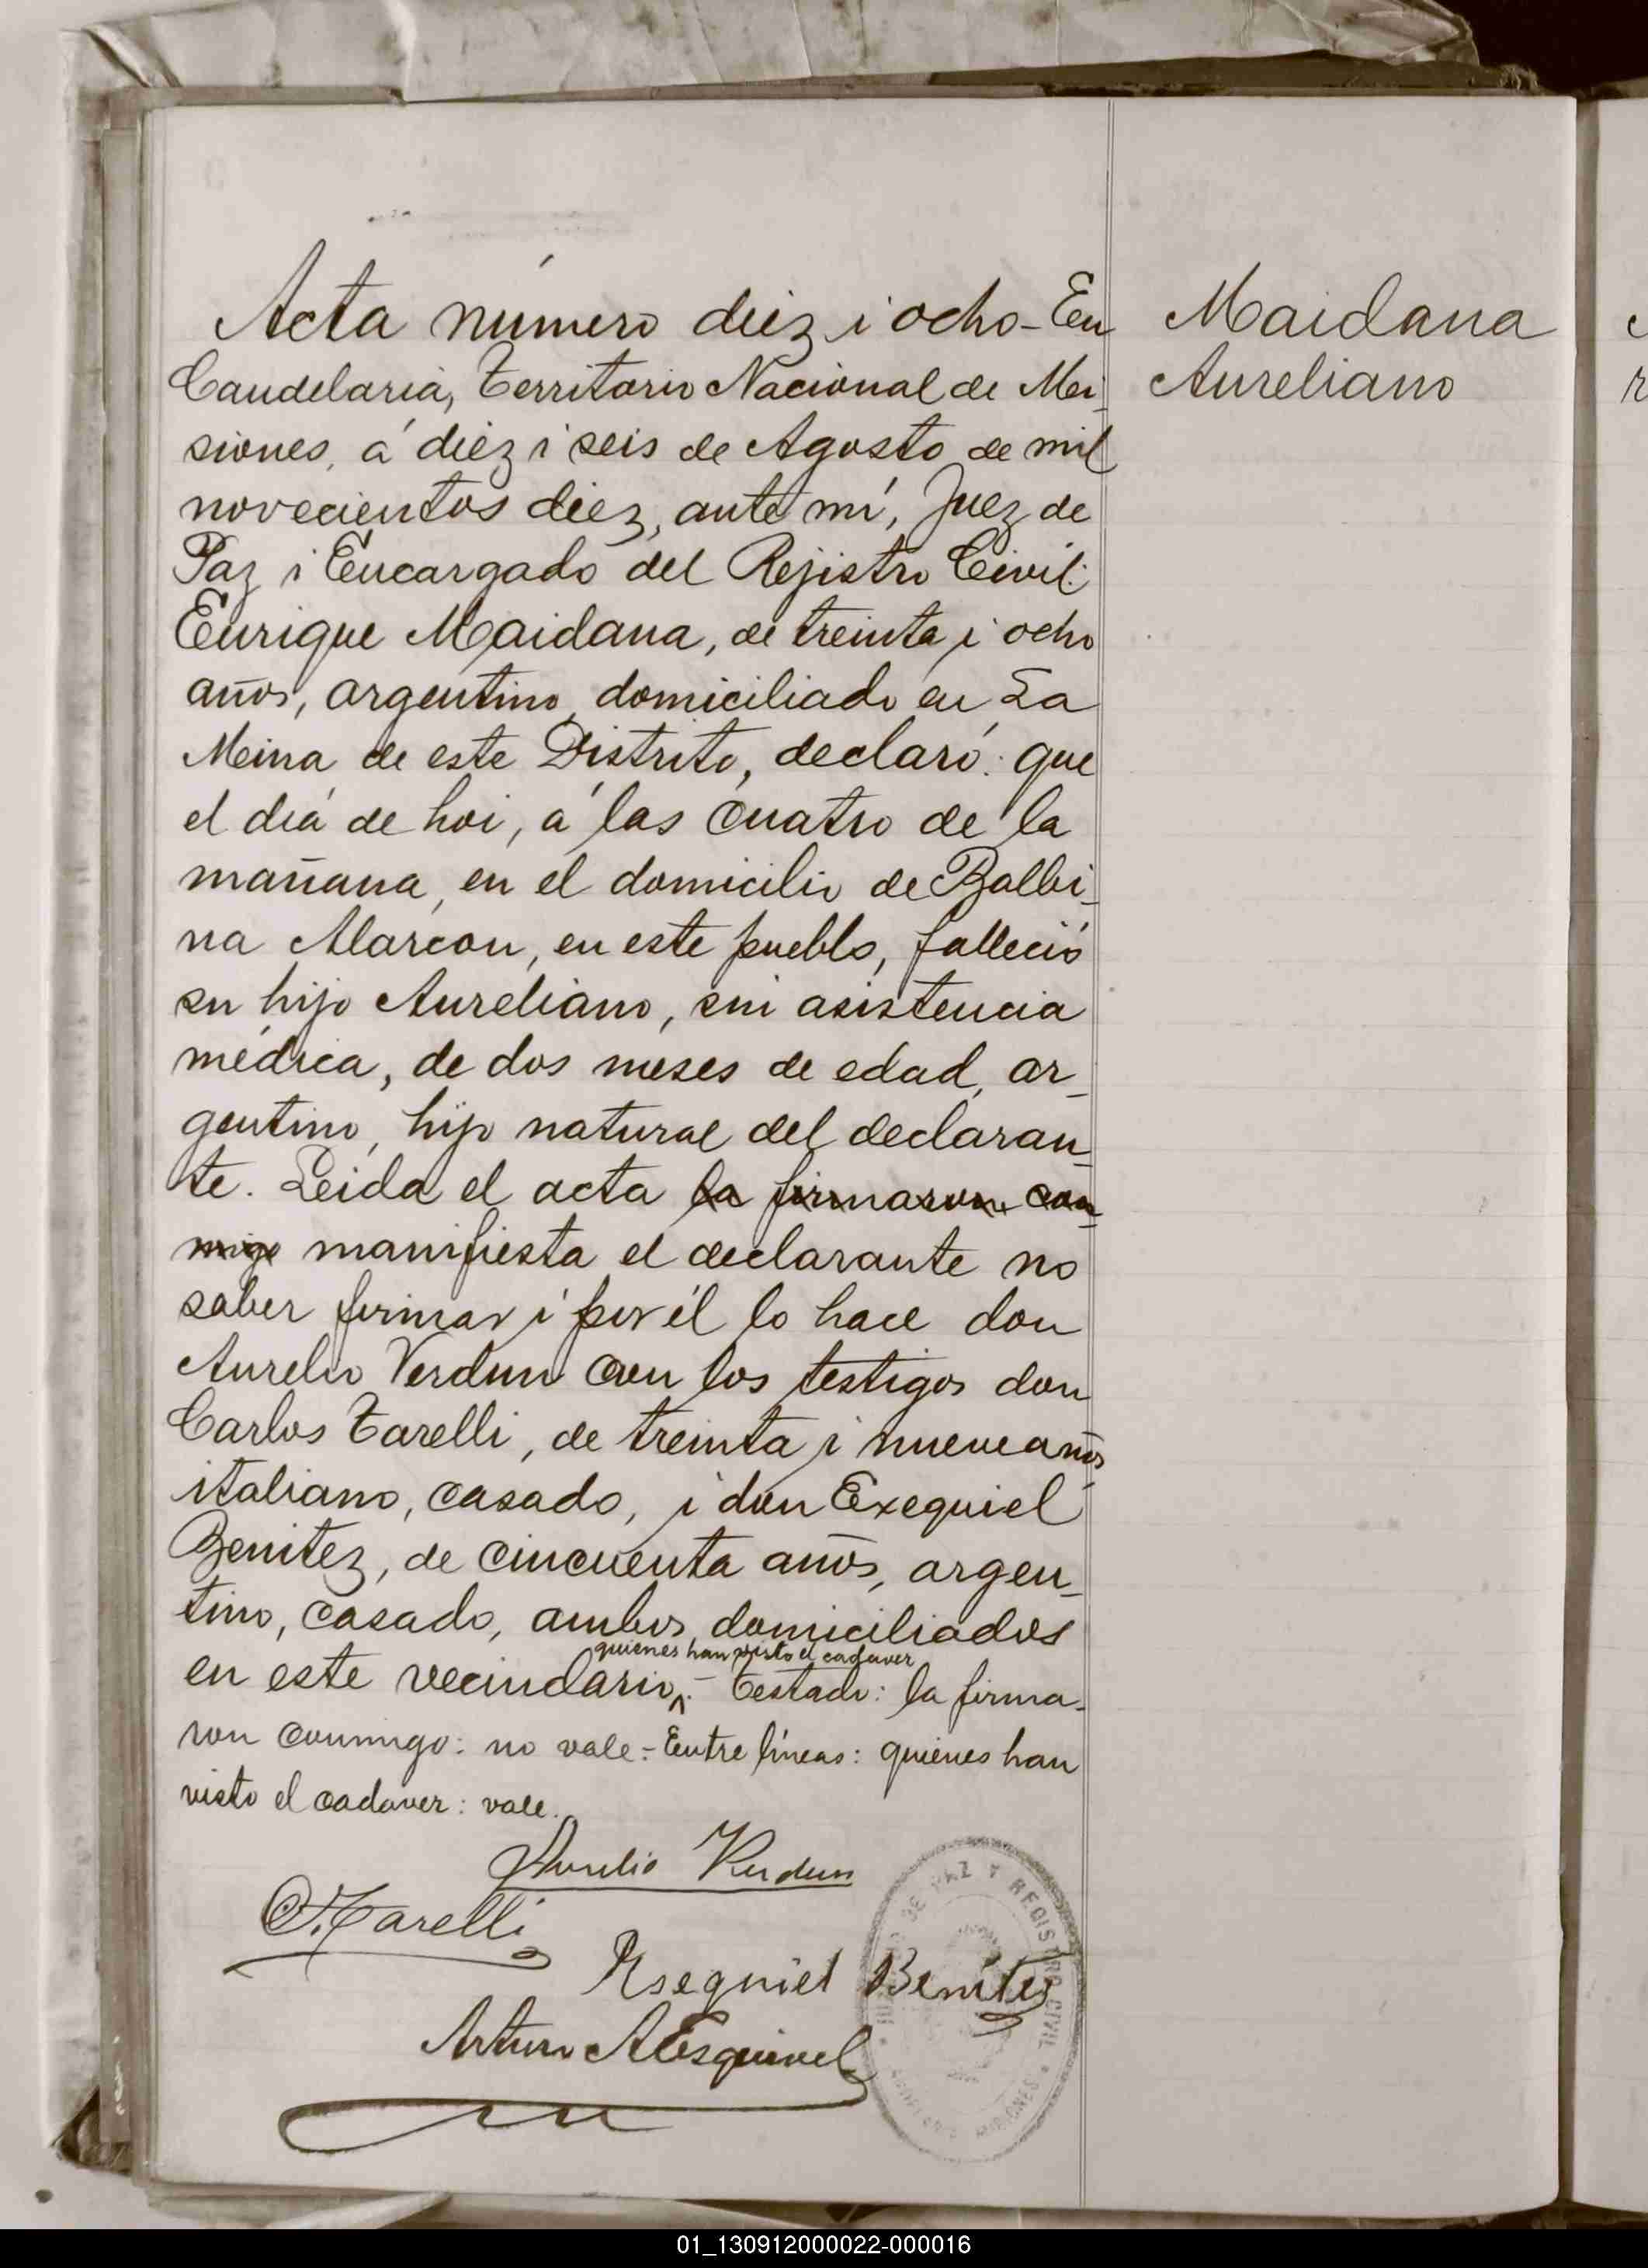 Acta número diez i ocho - En
Candelaria, Territorio Nacional de Mi-
siones, á diez i seis de Agosto de mil
novecientos diez, ante mí, Juez de
Paz i Encargado del Rejistro Civil:
Enrique Maidana, de treinta i ocho
años, argentino, domiciliado en La
Mina de este Distrito, declaró: que
el día de hoi, á las cuatro de la
mañana, en el domicilio de Balbi-
na Alarcon, en este pueblo, falleció
su hijo Aureliano, sin asistencia
médica, de dos meses de edad, ar-
gentino, hijo natural del declaran-
te. Leida el acta la firmaron con-
migo manifiesta el declarante no
saber firmar i por él lo hace don
Aurelio Verdun con los testigos don
Carlos Tarelli, de treinta i nueve años
italiano, casado, i don Exequiel
Benitez, de cincuenta años, argen-
tino, casado, ambos domiciliados
quienes han visto el cadaver
en este vecindario. - Testado: la firma-
ron conmigo: no vale. - Entre líneas: quienes han
visto el cadaver: vale.
Aurelio Verdun
C. Tarelli
Esequiel Benítez
Arturo A Esquivel
Maidana
Aureliano
DE PAZ Y REGISTRO CIVIL
MISIONES
01_130912000022-000016